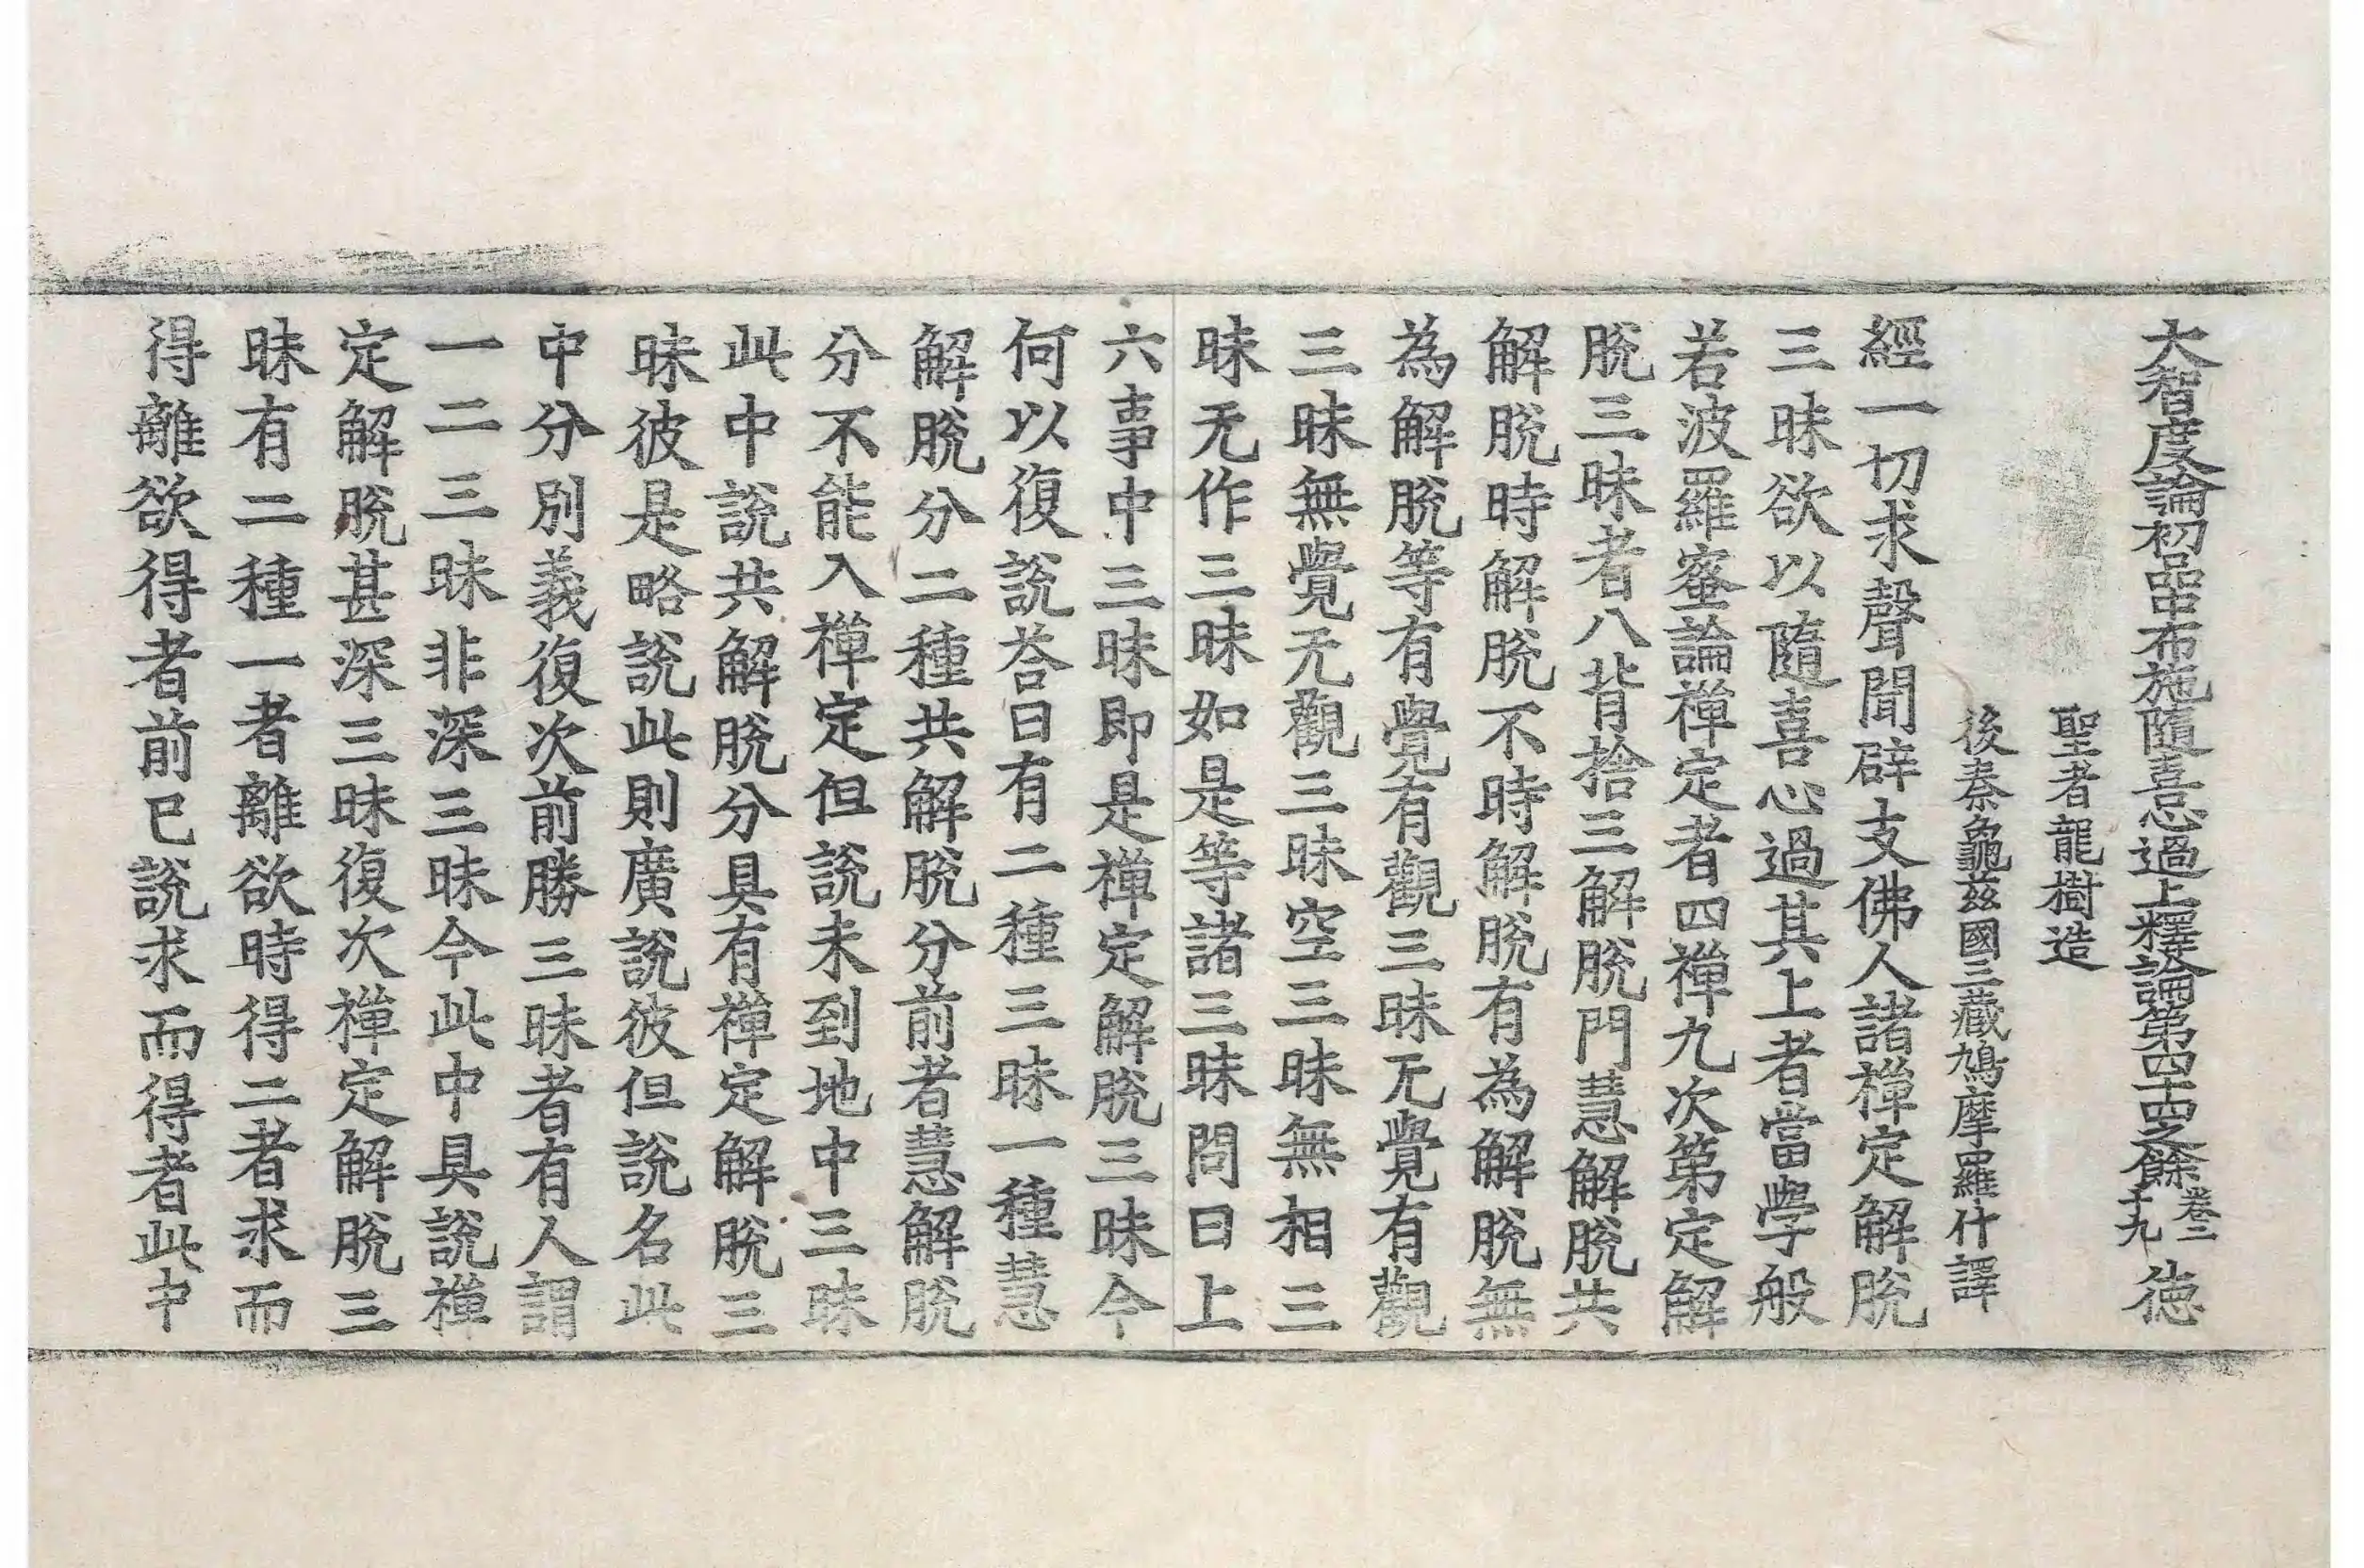 大智度論初品中布施隨喜心過上釋論第四十四之餘卷二十九 德
聖者龍樹造
後秦龜茲國三藏鳩摩羅什譯
經一切求聲聞辟支佛人諸禪定解脫
三昧欲以隨喜心過其上者當學般
若波羅蜜論禪定者四禪九次第定解
脫三昧者八背捨三解脫門慧解脫共
解脫時解脫不時解脫有為解脫無
為解脫等有覺有觀三昧无覺有觀
三昧無覺无觀三昧空三昧無相三
昧无作三昧如是等諸三昧問曰上
六事中三昧即是禪定解脫三昧今
何以復說荅曰有二種三昧一種慧
解脫分二種共解脫分前者慧解脫
分不能入禪定但說未到地中三昧
此中說共解脫分具有禪定解脫三
昧彼是略說此則廣說彼但說名此
中分別義復次前勝三昧者有人謂
一二三昧非深三昧今此中具說禪
定解脫甚深三昧復次禪定解脫三
昧有二種一者離欲時得二者求而
得離欲得者前已說求而得者此中